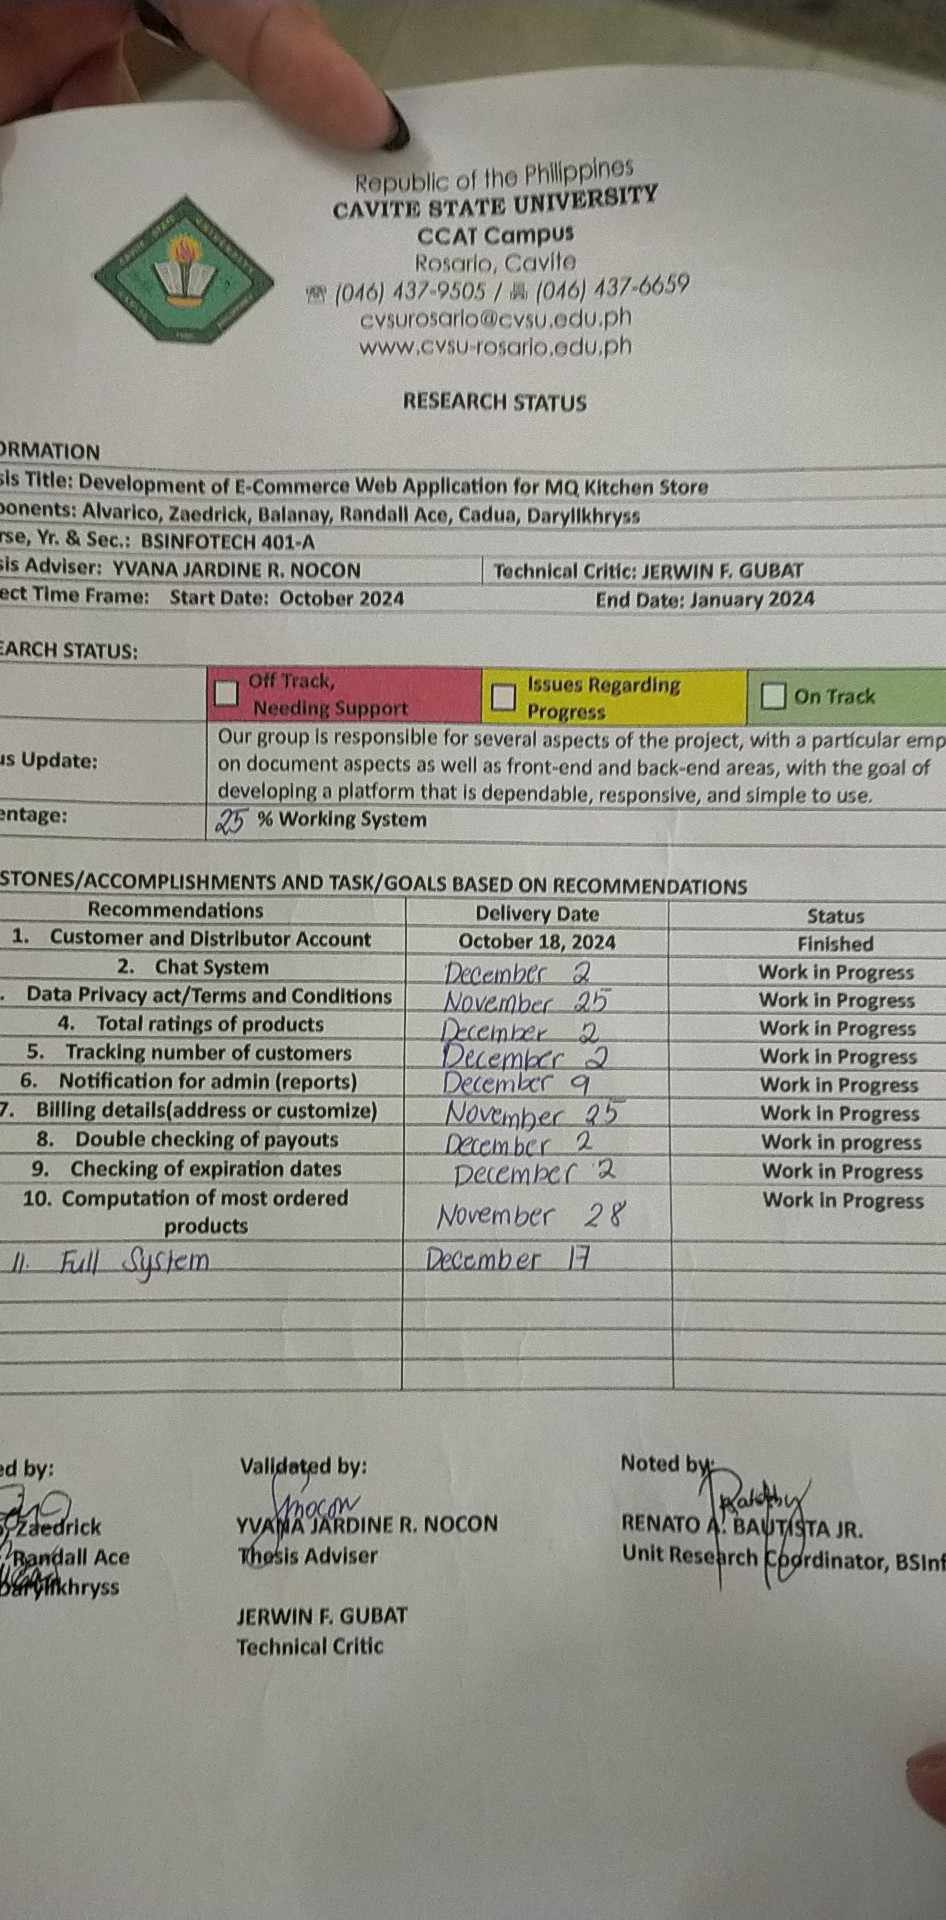 Republic of the Philippines
CAVITE STATE UNIVERSITY
CCAT Campus
Rosario, Cavite
(046) 437-9505 / (046) 437-6659
cvsurosario@cvsu.edu.ph
www.cvsu-rosario.edu.ph
RESEARCH STATUS
ORMATION
sis Title: Development of E-Commerce Web Application for MQ Kitchen Store
ponents: Alvarico, Zaedrick, Balanay, Randall Ace, Cadua, Daryllkhryss
rse, Yr. & Sec.: BSINFOTECH 401-A
sis Adviser: YVANA JARDINE R. NOCON Technical Critic: JERWIN F. GUBAT
ect Time Frame: Start Date: October 2024 End Date: January 2024
EARCH STATUS:
Off Track, Needing Support Issues Regarding Progress On Track
us Update: Our group is responsible for several aspects of the project, with a particular emp
on document aspects as well as front-end and back-end areas, with the goal of
developing a platform that is dependable, responsive, and simple to use.
entage: 25 % Working System
STONES/ACCOMPLISHMENTS AND TASK/GOALS BASED ON RECOMMENDATIONS
Recommendations Delivery Date Status
1. Customer and Distributor Account October 18, 2024 Finished
2. Chat System December 2 Work in Progress
. Data Privacy act/Terms and Conditions November 25 Work in Progress
4. Total ratings of products December 2 Work in Progress
5. Tracking number of customers December 2 Work in Progress
6. Notification for admin (reports) December 9 Work in Progress
7. Billing details(address or customize) November 25 Work in Progress
8. Double checking of payouts December 2 Work in progress
9. Checking of expiration dates December 2 Work in Progress
10. Computation of most ordered products November 28 Work in Progress
11. Full System December 17
ed by: Validated by: Noted by:
Zaedrick YVANA JARDINE R. NOCON RENATO A. BAUTISTA JR.
Randall Ace Thesis Adviser Unit Research Coordinator, BSInf
Daryllkhryss
JERWIN F. GUBAT
Technical Critic